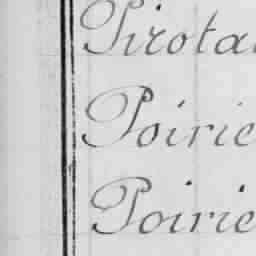 Pirota
Poirie
Poirie